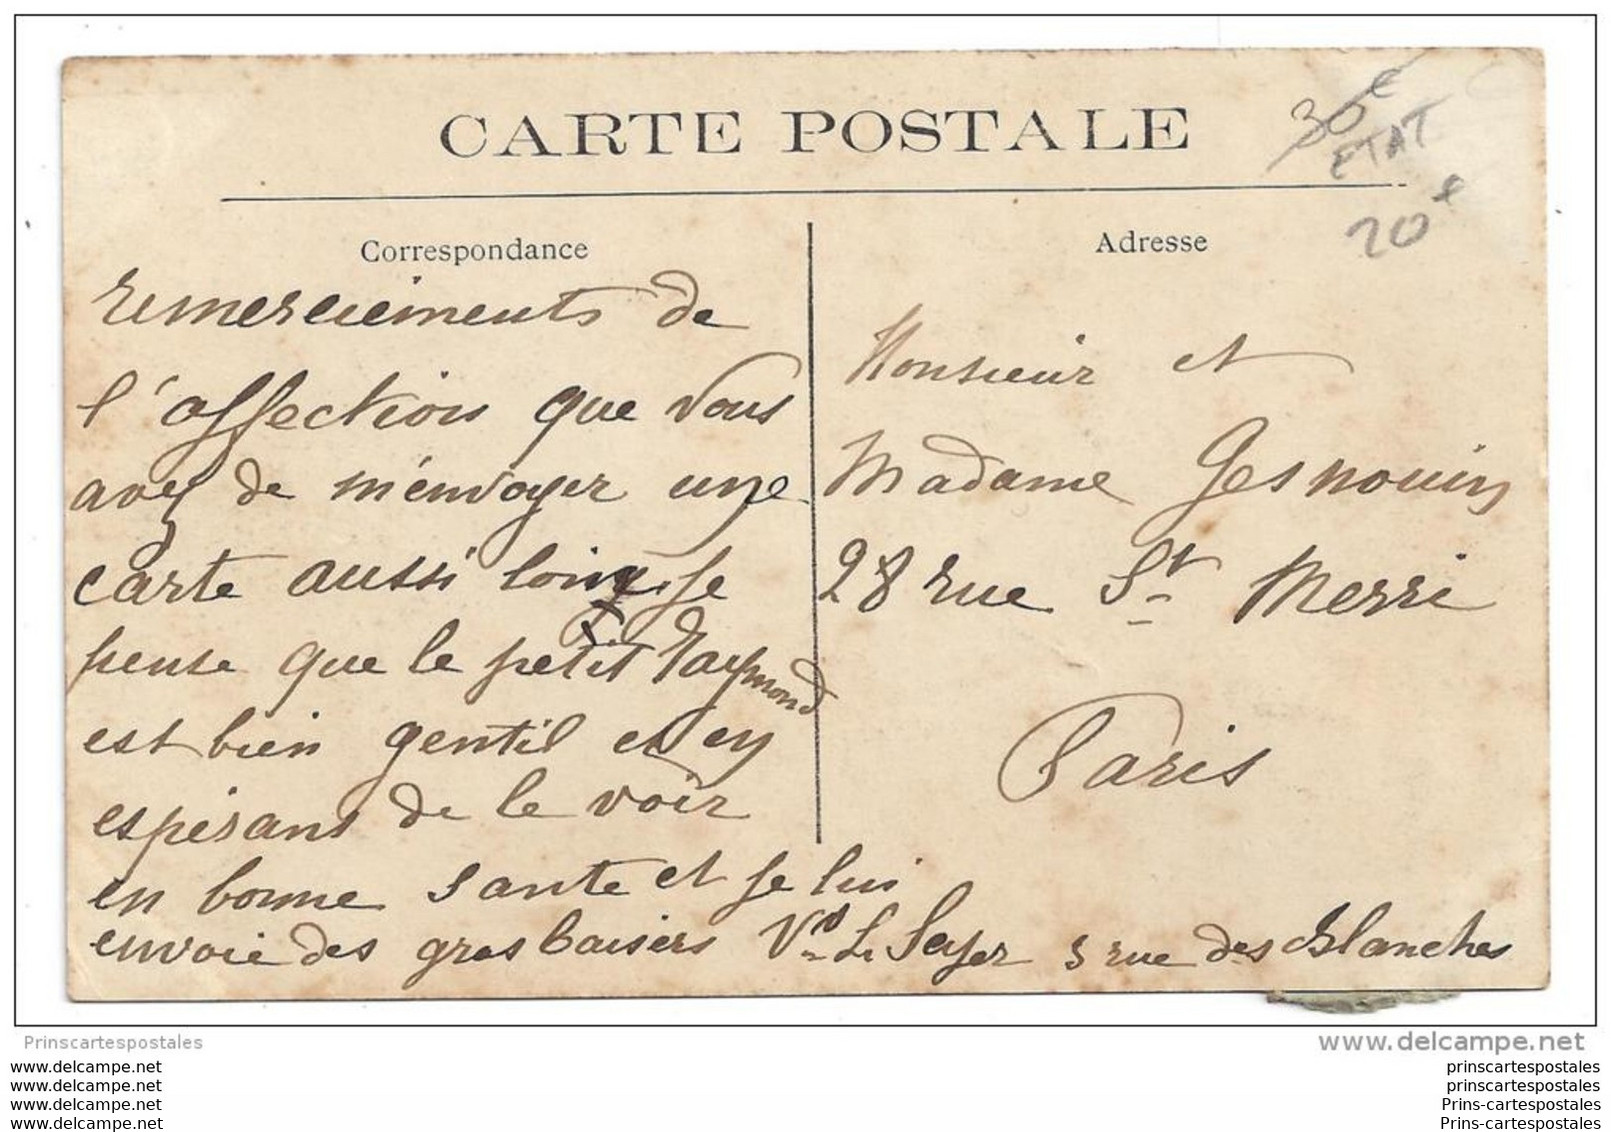 CARTE POSTALE
30€
ETAT
20€
Correspondance
Adresse
remerciements de
l'affection que vous
avez de m'envoyer une
carte aussi loin je
pense que le petit Raymond
est bien gentil et en
espérant de le voir
en bonne sante et je lui
envoie des gros baisers Vve Le Seyer 3 rue des Blanches
Monsieur et
Madame Gesnouin
28 rue St Merri
Paris
Prinscartespostales
www.delcampe.net
www.delcampe.net
www.delcampe.net
www.delcampe.net
www.delcampe.net
prinscartespostales
prinscartespostales
Prins-cartespostales
Prins-cartespostales